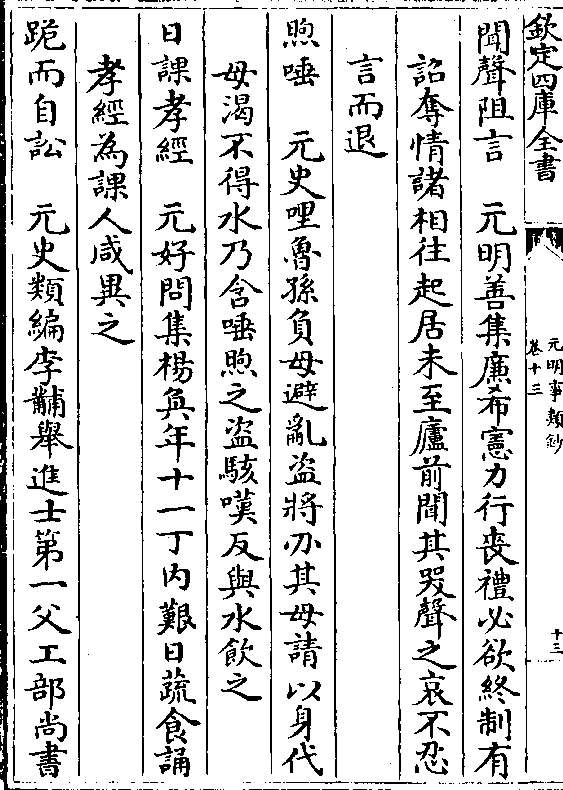 欽定四庫全書
元明事類鈔
卷十三
十三
聞聲阻言　元明善集廉希憲力行喪禮必欲終制有
詔奪情諸相往起居未至廬前聞其哭聲之哀不忍
言而退
煦唾　元史哩魯孫負母避亂盜將刃其母請以身代
母渴不得水乃含唾煦之盜駭嘆反與水飲之
日課孝經　元好問集楊奐年十一丁内艱日蔬食誦
孝經為課人咸異之
跪而自訟　元史類編李黼舉進士第一父工部尚書